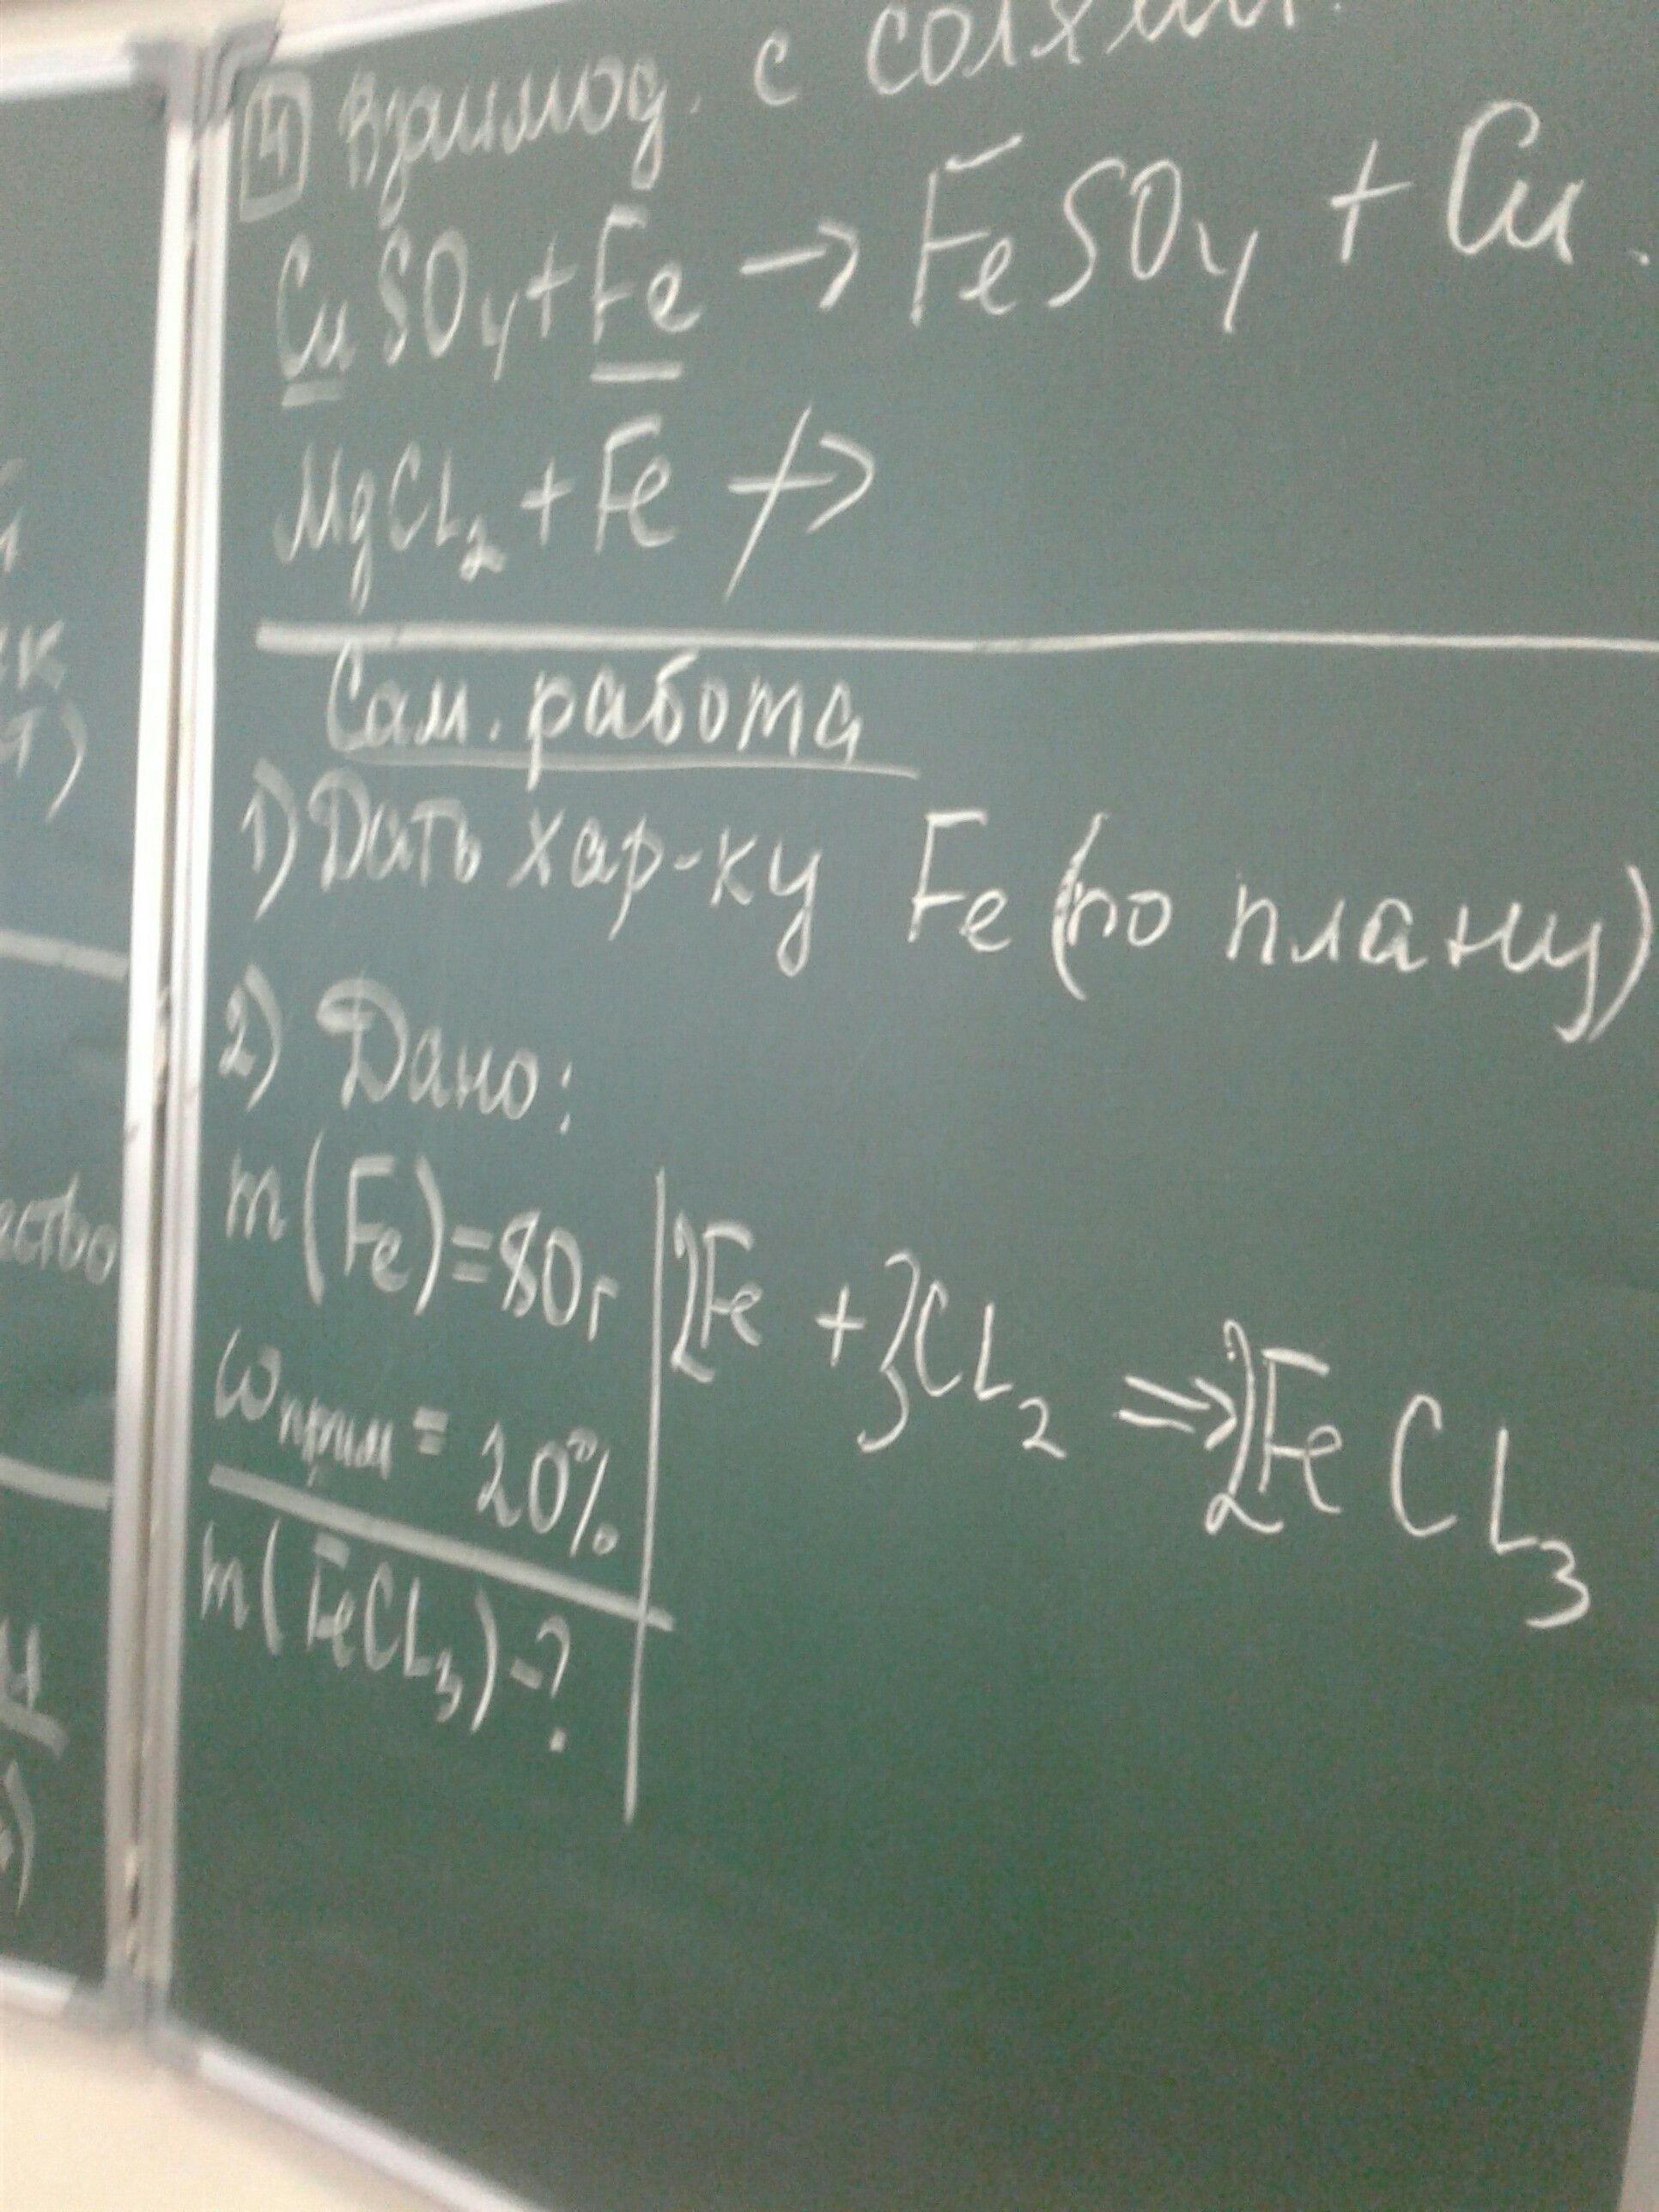 4 Взаимод. с солями.
CuSO4 + Fe → FeSO4 + Cu.
MgCl2 + Fe ↛
Сам. работа
1) Дать хар-ку Fe (по плану)
2) Дано:
m(Fe)=80г
ωприм = 20%
m(FeCl3)-?
2Fe + 3Cl2 ⇒ 2FeCl3
ество